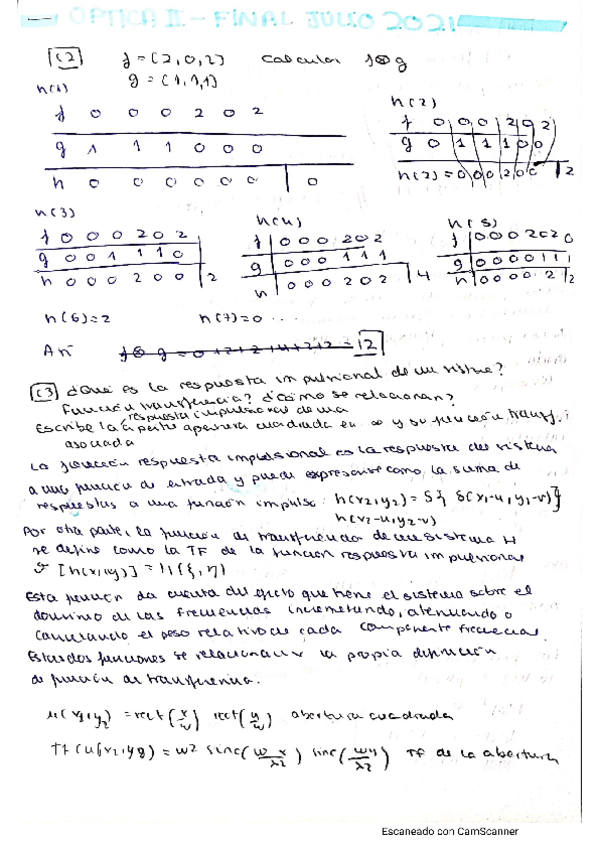 OPTICA II - FINAL JULIO 2021
C2 f = [2,0,2] calcular f⊗g
g = [1,1,1]
h(1)
f 0 0 0 2 0 2
g 1 1 1 0 0 0
h 0 0 0 0 0 0 | 0
h(2)
f 0 0 0 2 0 2
g 0 1 1 1 0 0
h(2) = 0 0 0 2 0 0 | 2
h(3)
f 0 0 0 2 0 2
g 0 0 1 1 1 0
h 0 0 0 2 0 0 | 2
h(4)
f 0 0 0 2 0 2
g 0 0 0 1 1 1
h 0 0 0 2 0 2 | 4
h(5)
f 0 0 0 2 0 2 0
g 0 0 0 0 1 1 1
h 0 0 0 0 2 | 2
h(6)=2 h(7)=0 ...
Así f⊗g = 0+2+2+4+2+2 = 12
C3 ¿Qué es la respuesta impulsional de un sistema?
función transferencia? ¿cómo se relacionan?
respuesta impulsional de una
Escribe la apertura cuadrada en ∞ y su función transf.
asociada
La función respuesta impulsional es la respuesta del sistema
a una función de entrada y puede expresarse como la suma de
respuestas a una función impulso: h(x2,y2) = S{ δ(x1-u, y1-v)}
h(x2-u, y2-v)
Por otra parte, la función de transferencia de un sistema H
se define como la TF de la función respuesta impulsional
[h(x,y)] = H(ξ, η)
Esta función da cuenta del efecto que tiene el sistema sobre el
dominio de las frecuencias incrementando, atenuando o
cancelando el peso relativo de cada componente frecuencial.
Estas dos funciones se relacionan x la propia definición
de función de transferencia.
= rect(x/w) rect(y/w) abertura cuadrada
= w² sinc(w x/λz) sinc(w y/λz) TF de la abertura
Escaneado con CamScanner